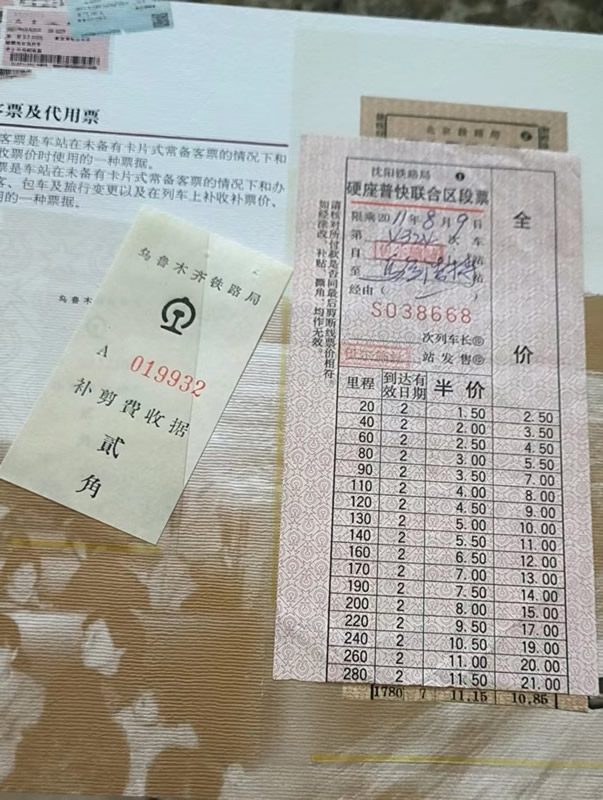 客票及代用票
客票是车站在未备有卡片式常备客票的情况下和
收票价时使用的一种票据。
票是车站在未备有卡片式常备客票的情况下和办
客、包车及旅行变更以及在列车上补收补票价、
用的一种票据。
乌鲁木
乌鲁木齐铁路局
A 019932
补剪費收据
贰
角
北京铁路局
沈阳铁路局
硬座普快联合区段票
限乘2011年8月9日
第 次车
自 站
至 站
经由( )
S038668
次列车长
站发售
全
价
请核对所付款是否同最后剪断线票价相符。
如经涂改、补贴、撕角,均作无效。
里程 到达有效日期 半价
20 2 1.50 2.50
40 2 2.00 3.50
60 2 2.50 4.50
80 2 3.00 5.50
90 2 3.50 7.00
110 2 4.00 8.00
120 2 4.50 9.00
130 2 5.00 10.00
140 2 5.50 11.00
160 2 6.50 12.00
170 2 7.00 13.00
190 2 7.50 14.00
200 2 8.00 15.00
220 2 9.50 17.00
240 2 10.50 19.00
260 2 11.00 20.00
280 2 11.50 21.00
1780 7 11.15 10.85